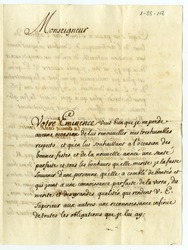 Monseigneur
Votre Eminence veut bien que je reponde
aucune occasion de lui renouveller mes treshumbles
respets et qu'en lui souhaittant a l'occasion des
bonnes festes et de la nouvelle année une santé
parfaite et tous les bonheurs qu'elle merite je la fasse
souvenir d'une personne qu'elle a comblé de bontés et
qui joint a une connoissance parfaite de la vertu, du
merite et des grandes qualités qui rendent V. E.
Superieure aux autres une reconnoissance infinie
de toutes les obligations que je lui ay;